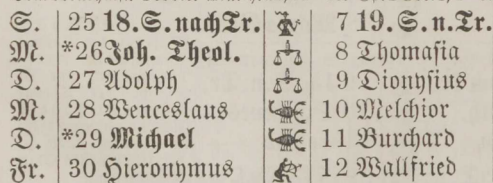 S. 25 18. S. nach Tr. 7 19. S. n. Tr.
M. *26 Joh. Theol. 8 Thomasia
D. 27 Adolph 9 Dionysius
M. 28 Wenceslaus 10 Melchior
D. *29 Michael 11 Burchard
Fr. 30 Hieronymus 12 Wallfried